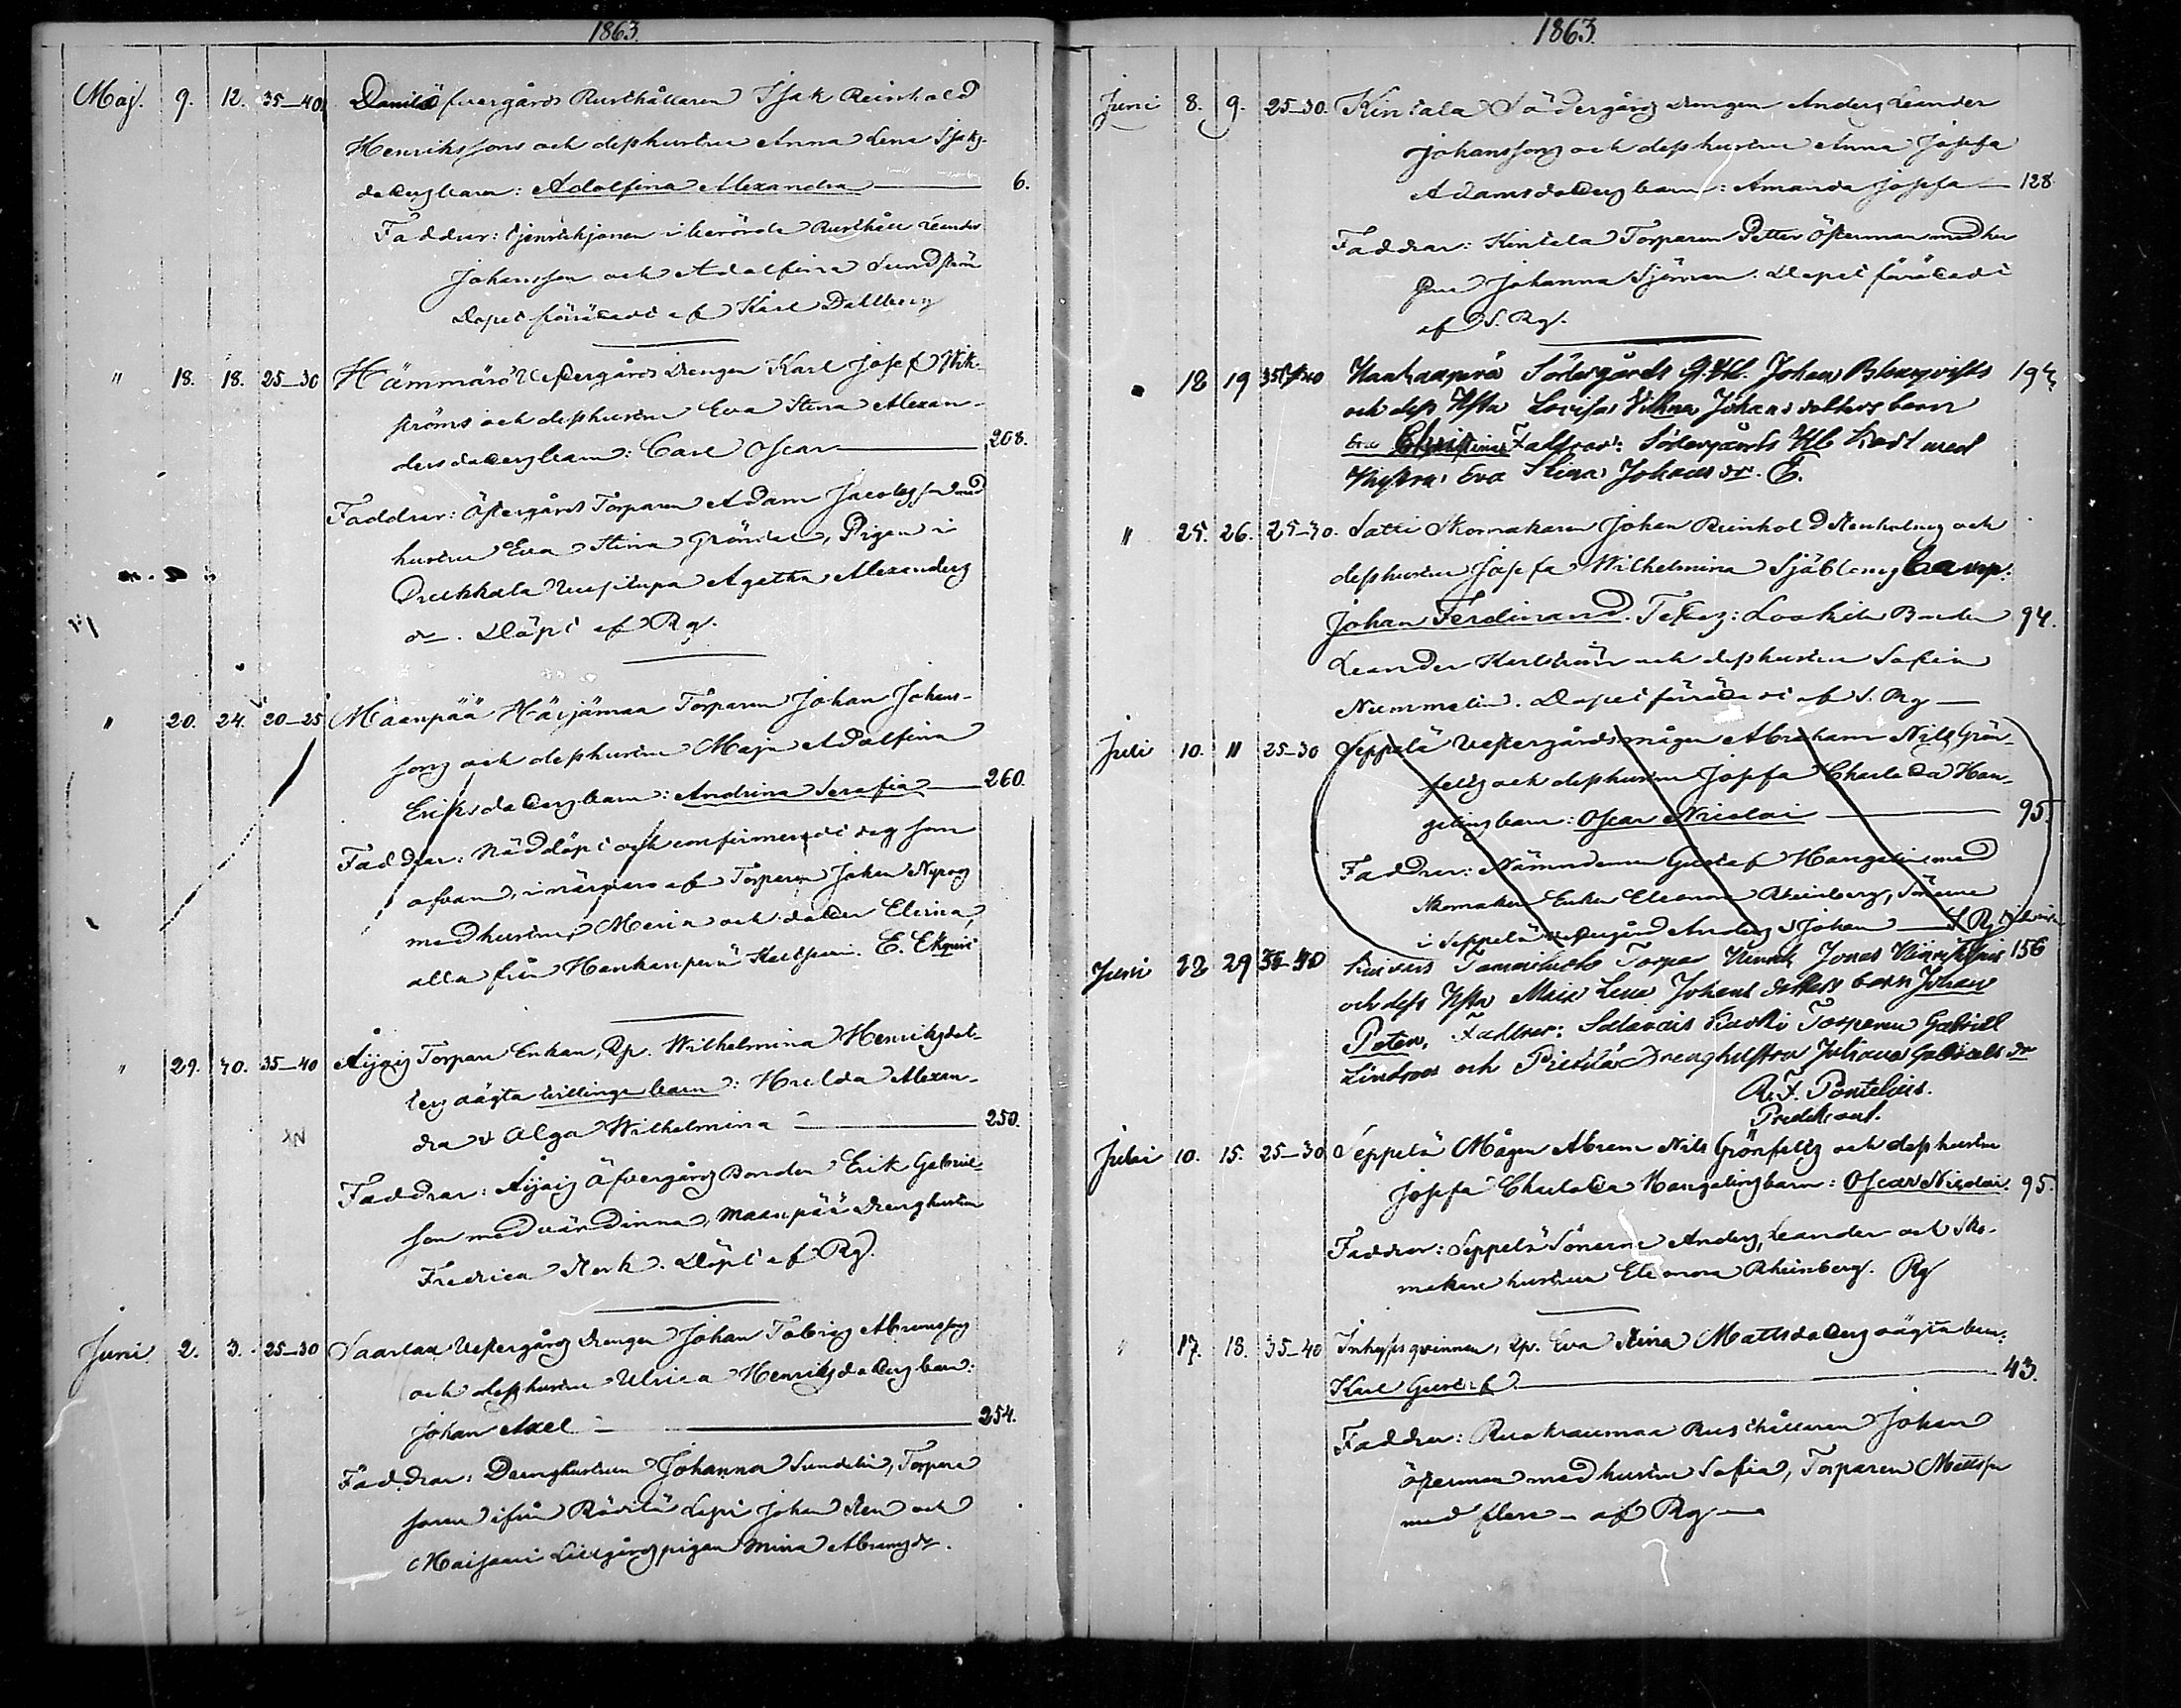 1863.
Maj. 9. 12. 35-40 Danilä Öfvergårds Rusthållaren Isak Reinhold
Henrikssons och dess hustru Anna Lena Isaks
dotters barn: Adolfina Alexandra — 6.
Faddrar: Rusthåll Leander
Johansson och Adolfina Sundström
Dopet förrättadt af Karl Dahlberg
" 18. 18. 25-30 Hämmärö Vestergårds Drengen Karl Josef Wik-
ströms och dess hustru Eva Stina Alexan-
dersdotters barn: Carl Oscar — 208.
Faddrar: Östergårds Torparen Adam Jacobsson med
hustru Eva Stina Gröndal, Pigan i
Agatha Alexanders
dr. Döpt af Rg.
" 20. 24. 20-25 Maanpää Härjämaa Torparen Johan Johans-
sons och dess hustru Maja Adolfina
Eriksdotters barn: Andrina Serafia — 260.
Faddrar: Nöddöpt och confirmeradt dag som
ofvan, i närvaro af Torparen Johan
med hustru Maria och dotter Elina,
alla från Hankanperä E. Ekqvist
" 29. 30. 35-40 Äijäis Torpare Enkan, Qp. Wilhelmina Henriksdot-
ters oägta tvillinge barn: Hulda Alexan-
dra & Olga Wilhelmina — 250.
Faddrar: Äijäis Öfvergårds Bonden Erik Gabriel-
son med värdinna, Maanpää Drenghustru
Fredrica Stark. Döpt af Rg.
Juni. 2. 3. 25-30 Saarlax Vestergårds Drengen Johan Tobias Abramssons
och dess hustru Ulrica Henriksdotters barn:
Johan Axel — 254.
Faddrar: Drenghustrun Johanna Sundelin, Torpare
sonen ifrån Rävitä Johan Sten och
Lillgårds pigan Mina Abramsdr.
1863.
Juni 8. 9. 25-30. Kintala Södergårds Drengen Anders Leander
Johanssons och dess hustru Anna Josefa
Adamsdotters barn: Amanda Josefa — 128.
Faddrar: Kintala Torparen Petter Österman med hu-
stru Johanna Sjöman. Dopet förrättadt
af S. Rg.
18 19 35-40 Hankanperä Södergårds Johan Blomqvists 194
och dess Hstu Lovisa Vilhna Johansdotters barn
Eva Christina Faddrar: Södergårds Karl med
Hustru Eva Stina Johans dr. E.
" 25. 26. 25-30. Satti Skomakaren Johan Reinhold Stenholms och
dess hustru Josefa Wilhelmina Sjöbloms barn:
Johan Ferdinand. Test: Bonden 94.
Leander Karlström och dess hustru Sofia
Nummelin. Dopet förrättadt af S. Rg —
Juli 10. 11 25-30 Seppälä Vestergårds mågen Abraham Nils Grön-
felts och dess hustru Josefa Charlotta Han-
gelins barn: Oscar Nicolai — 95.
Faddrar: Nämndeman Gustaf Hangelin med
Skomakare Enkan Eleonora Rheinberg, Sönerne
i Seppälä Vestergård Anders & Johan — S. Rg
Juni 28 29 35-40 Torpar Jonas 156
och dess Hstu Maia Lena Johans dotters barn Johan
Peter. Faddrar: Torparen Gabriel
Lindroos och Drenghustru Juliana Gabriels dr
R. F. Pontelius.
Predik. ant.
Juli 10. 15. 25-30 Seppälä Mågen Abram Nils Grönfelts och dess hustru
Josefa Charlotta Hangelins barn: Oscar Nicolai. 95.
Faddrar: Seppälä Sönerne Anders, Leander och Sko-
makare hustrun Eleonora Rheinberg. Rg
" 17. 18. 35-40 Inhyses qvinnan, Qp. Eva Stina Mattsdotters oägta barn:
Karl Gustaf — 43.
Faddrar: Ruokraumaa Rusthållaren Johan
Österman med hustru Sofia, Torparen Mattsson
med flere — af Rg —